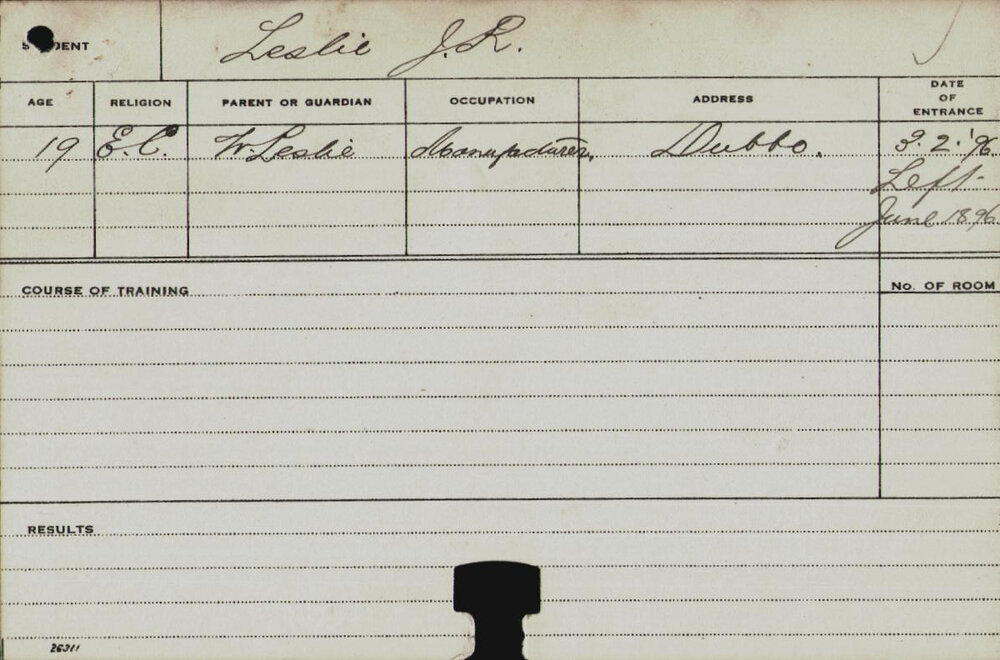 STUDENT Leslie J.R.
AGE RELIGION PARENT OR GUARDIAN OCCUPATION ADDRESS DATE OF ENTRANCE
19 E.C. W. Leslie Manufacturer. Dubbo. 3.2.'96
Left
June 1896
COURSE OF TRAINING No. OF ROOM
RESULTS
26311